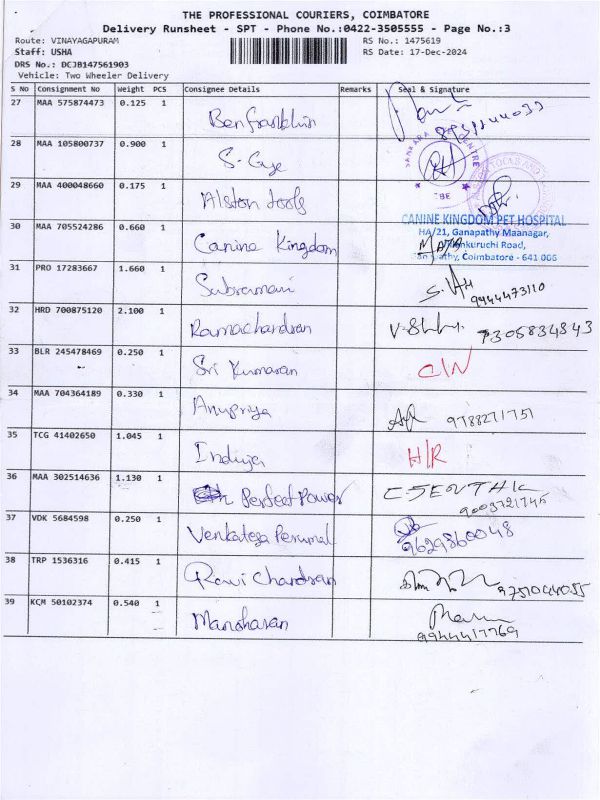 THE PROFESSIONAL COURIERS, COIMBATORE
Delivery Runsheet - SPT - Phone No.:0422-3505555 - Page No.:3
Route: VINAYAGAPURAM RS No.: 1475619
Staff: USHA RS Date: 17-Dec-2024
DRS No.: DCJB147561903
Vehicle: Two Wheeler Delivery
S No Consignment No Weight PCS Consignee Details Remarks Seal & Signature
27 MAA 575874473 0.125 1 Benfranklin
28 MAA 105800737 0.900 1 S-Cape
29 MAA 400048660 0.175 1 Alston tools
30 MAA 705524286 0.660 1 Canine Kingdom
CANINE KINGDOM PET HOSPITAL
HA/21, Ganapathy Maanagar,
Road,
Coimbatore - 641 006
31 PRO 17283667 1.660 1 Subramani
9944473110
32 HRD 700875120 2.100 1 Ramachandran 7305834843
33 BLR 245478469 0.250 1 Sri Kumaran C/N
34 MAA 704364189 0.330 1 Anupriya 9788271751
35 TCG 41402650 1.045 1 Induja H/R
36 MAA 302514636 1.130 1 Perfect Power
9003721745
37 VDK 5684598 0.250 1 Venkatesa Perumal 9629860048
38 TRP 1536316 0.415 1 Ravi Chandran 9751044055
39 KCM 50102374 0.540 1 Manoharan
9944417769